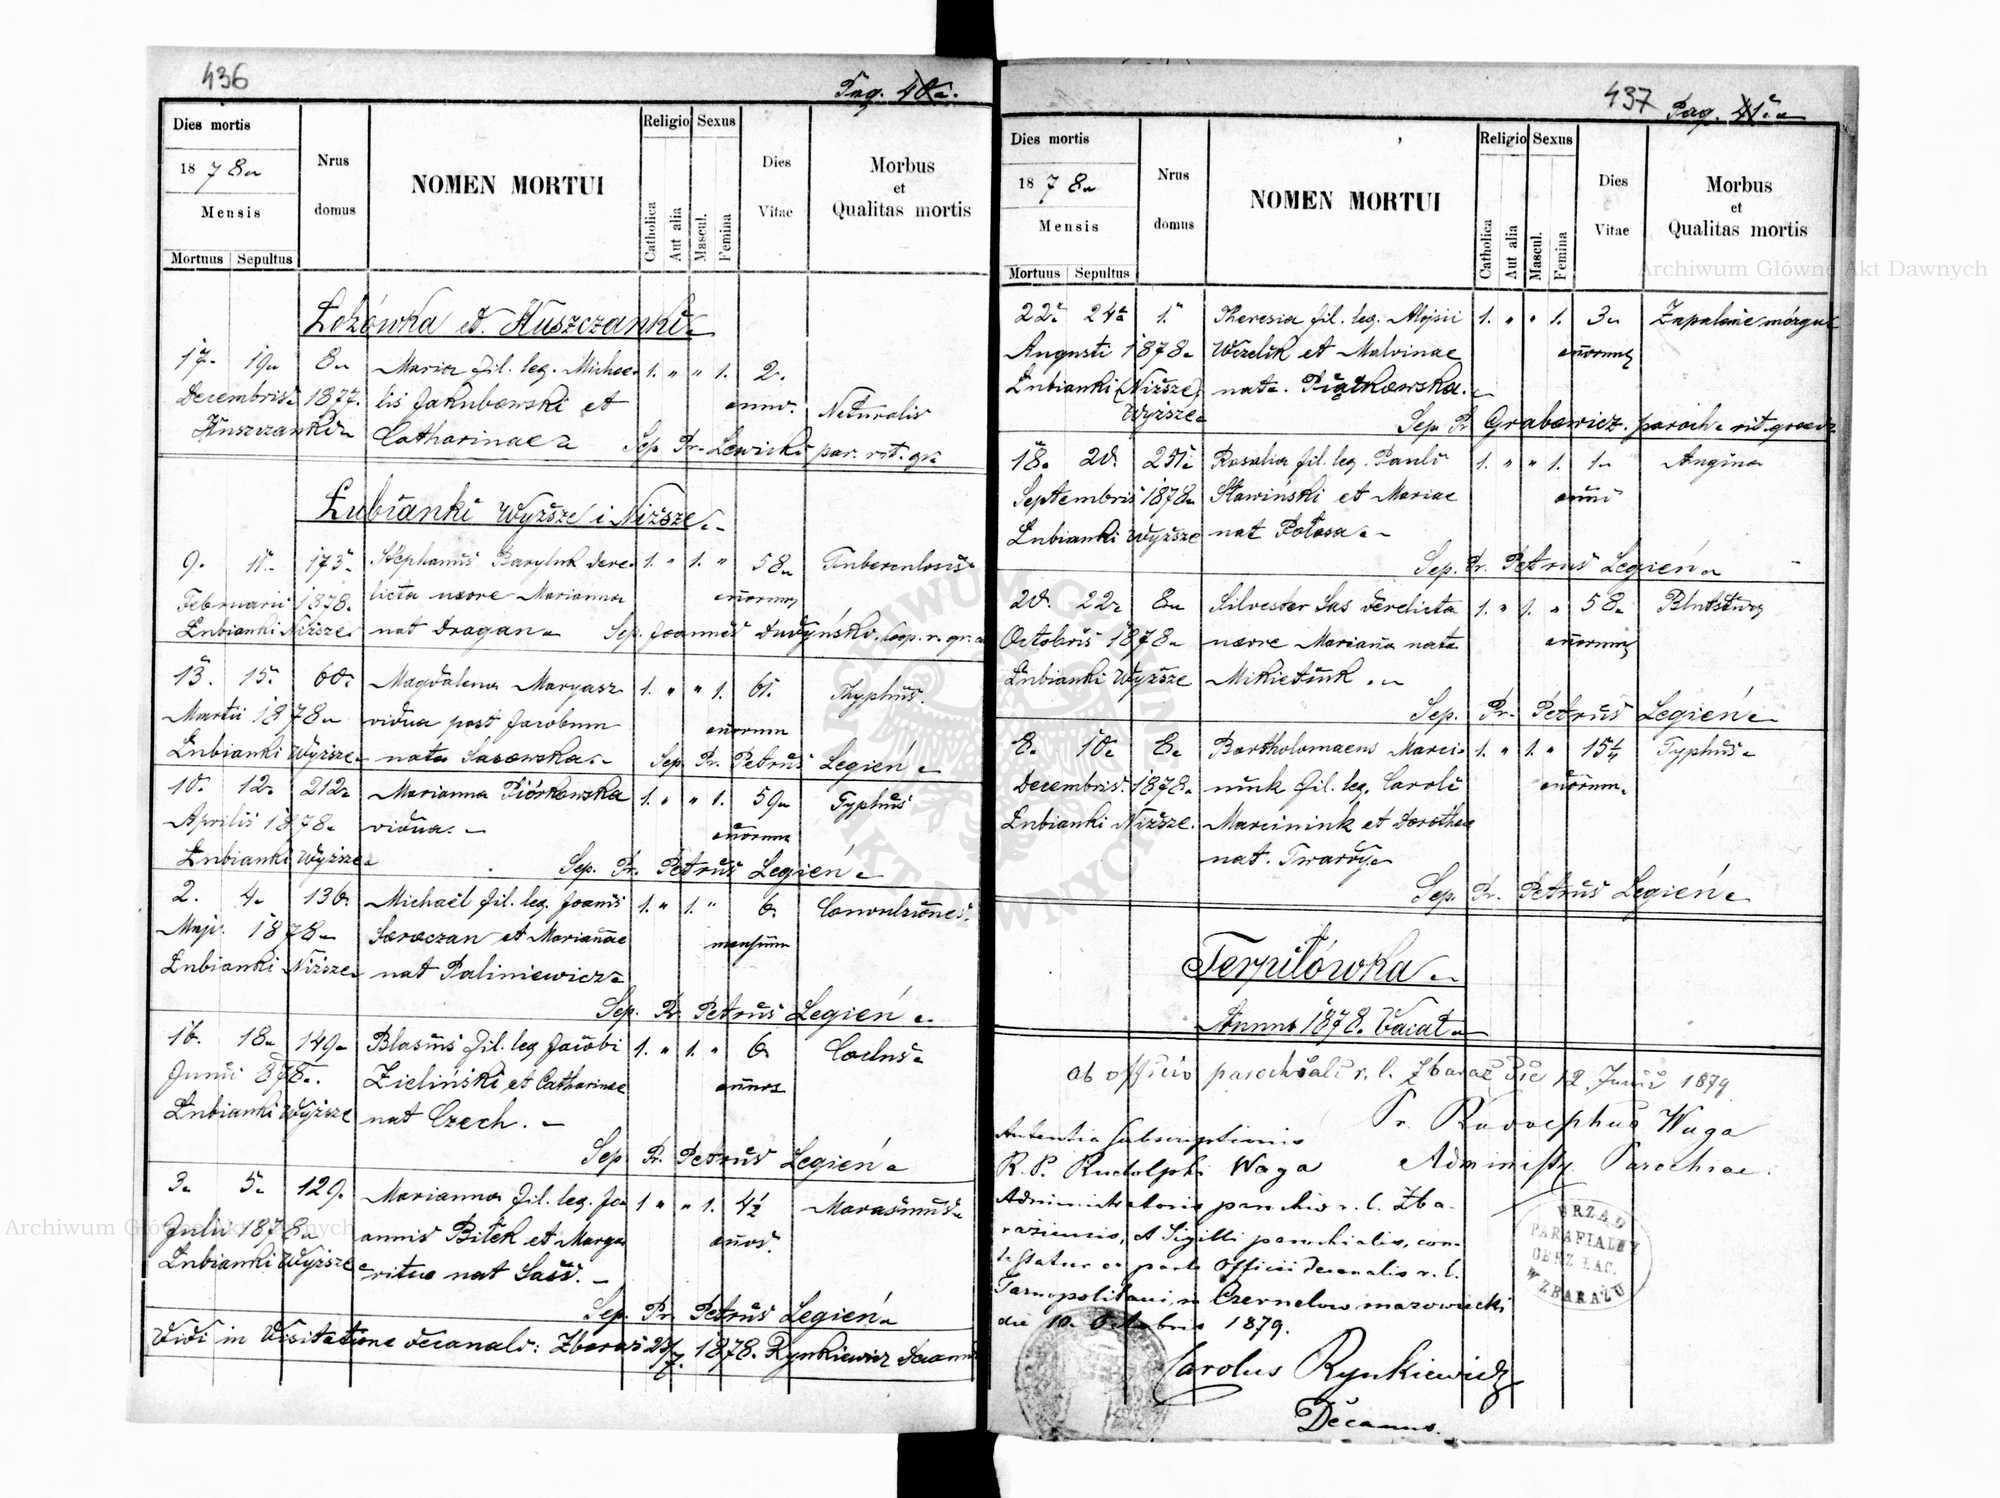 436
Pag. 40a.
Dies mortis
1878a
Mensis
Mortuus Sepultus
Nrus domus
NOMEN MORTUI
Religio
Catholica
Aut alia
Sexus
Mascul.
Femina
Dies Vitae
Morbus
et
Qualitas mortis
Łozówka et Huszczanki
17. 19a 8a Maria fil. leg. Michae- 1. " " 1. 2.
Decembris 1877. lis Jakubowski et anno. Naturalis
Huszczanki Catharinae
Sep. Pr. Lewicki par. rit. gr.
Łubianki Wyższe i Niższe.
9. 11. 173. Stephanus Baryluk dere- 1. " 1. " 58a Tuberculosis
Februarii 1878. licta uxore Marianna annorum
Łubianki Niższe nat Dragan
Sep. Joannes Dudyński. Coop. r. gr.
13. 15. 60. Magdalena Margasz 1. " " 1. 61. Thyphus.
Martii 1878a vidua post Jacobum annorum
Łubianki Wyższe nata Sasowska.
Sep. Pr. Petrus Legień
10. 12. 212a Marianna Piórkowska 1. " " 1. 59a Typhus
Aprilis 1878. vidua. annorum
Łubianki Wyższe
Sep. Pr. Petrus Legień
2. 4. 130. Michaël fil. leg. Joanis 1. " 1. " 6. Convulsiones.
Maji. 1878a Saraczan et Mariannae mensium
Łubianki Niższe nat Paliniewicz
Sep. Pr. Petrus Legień
16. 18. 149a Blasius fil. leg Jacobi 1. " 1. " 6.
Junii 878. Zieliński et Catharinae annos
Łubianki Wyższe nat Czech.
Sep Pr. Petrus Legień
3. 5. 129. Marianna fil. leg. Jo- 1 " " 1. 4½ Marasmus
Julii 1878a annis Biłek et Marga- annos.
Łubianki Wyższe ritae nat Sass.
Sep. Pr. Petrus Legień
Vidi in Visitatione decanali: Zbaraż 1878. Rynkiewicz decanus
437
Pag. 41.a
Dies mortis
1878a
Mensis
Mortuus Sepultus
Nrus domus
NOMEN MORTUI
Religio
Catholica
Aut alia
Sexus
Mascul.
Femina
Dies Vitae
Morbus
et
Qualitas mortis
22. 24a 1. Theresia fil. leg. Alojsii 1. " " 1. 3a Zapalenie mózgu
Augusti 1878a Wizelik et Malvinae annorum
Łubianki (Niższe) nata. Piątkowska.
Wyższe
Sep. Pr Grabowicz. paroch. rit. graeci
18. 20. 251. Rosalia fil. leg. Pauli 1. " " 1. 1a Angina
Septembris 1878a Sławiński et Mariae anni
Łubianki Wyższe nat Potosa.
Sep. Pr. Petrus Legień
20. 22a 8a Silvester Sas derelicta 1. " 1. " 58. Blutsturz
Octobris 1878a uxore Marianna nata annorum
Łubianki Wyższe Mikietiuk.
Sep. Pr. Petrus Legień
8. 10. 6. Bartholomaeus Marci- 1. " 1. " 15¼ Typhus
Decembris. 1878a niuk fil. leg. Caroli annorum.
Łubianki Niższe. Marciniuk et Dorothea
nat. Twardy
Sep. Pr. Petrus Legień
Terpiłówka
Annus 1878. Vacat
ab officio parochiali r. l. Zbaraż die 12 Junii 1879
Pr. Rudolphus Waga
Administr. Parochiae.
Autentia subscriptionis
R. P. Rudolphi Waga
Administratoris parochiae r. l. Zba-
rażiensis, et Sigilli parochialis, con-
testatur ex parte Officii decanalis r. l.
Tarnopolitani, in Czernelow mazowiecki
die 10. Octobris 1879.
Carolus Rynkiewicz
Decanus.
URZĄD
PARAFIALNY
OBRZ ŁAC.
W ZBARAŻU
Archiwum Główne Akt Dawnych
Archiwum Główne Akt Dawnych
ARCHIWUM GŁÓWNE AKT DAWNYCH